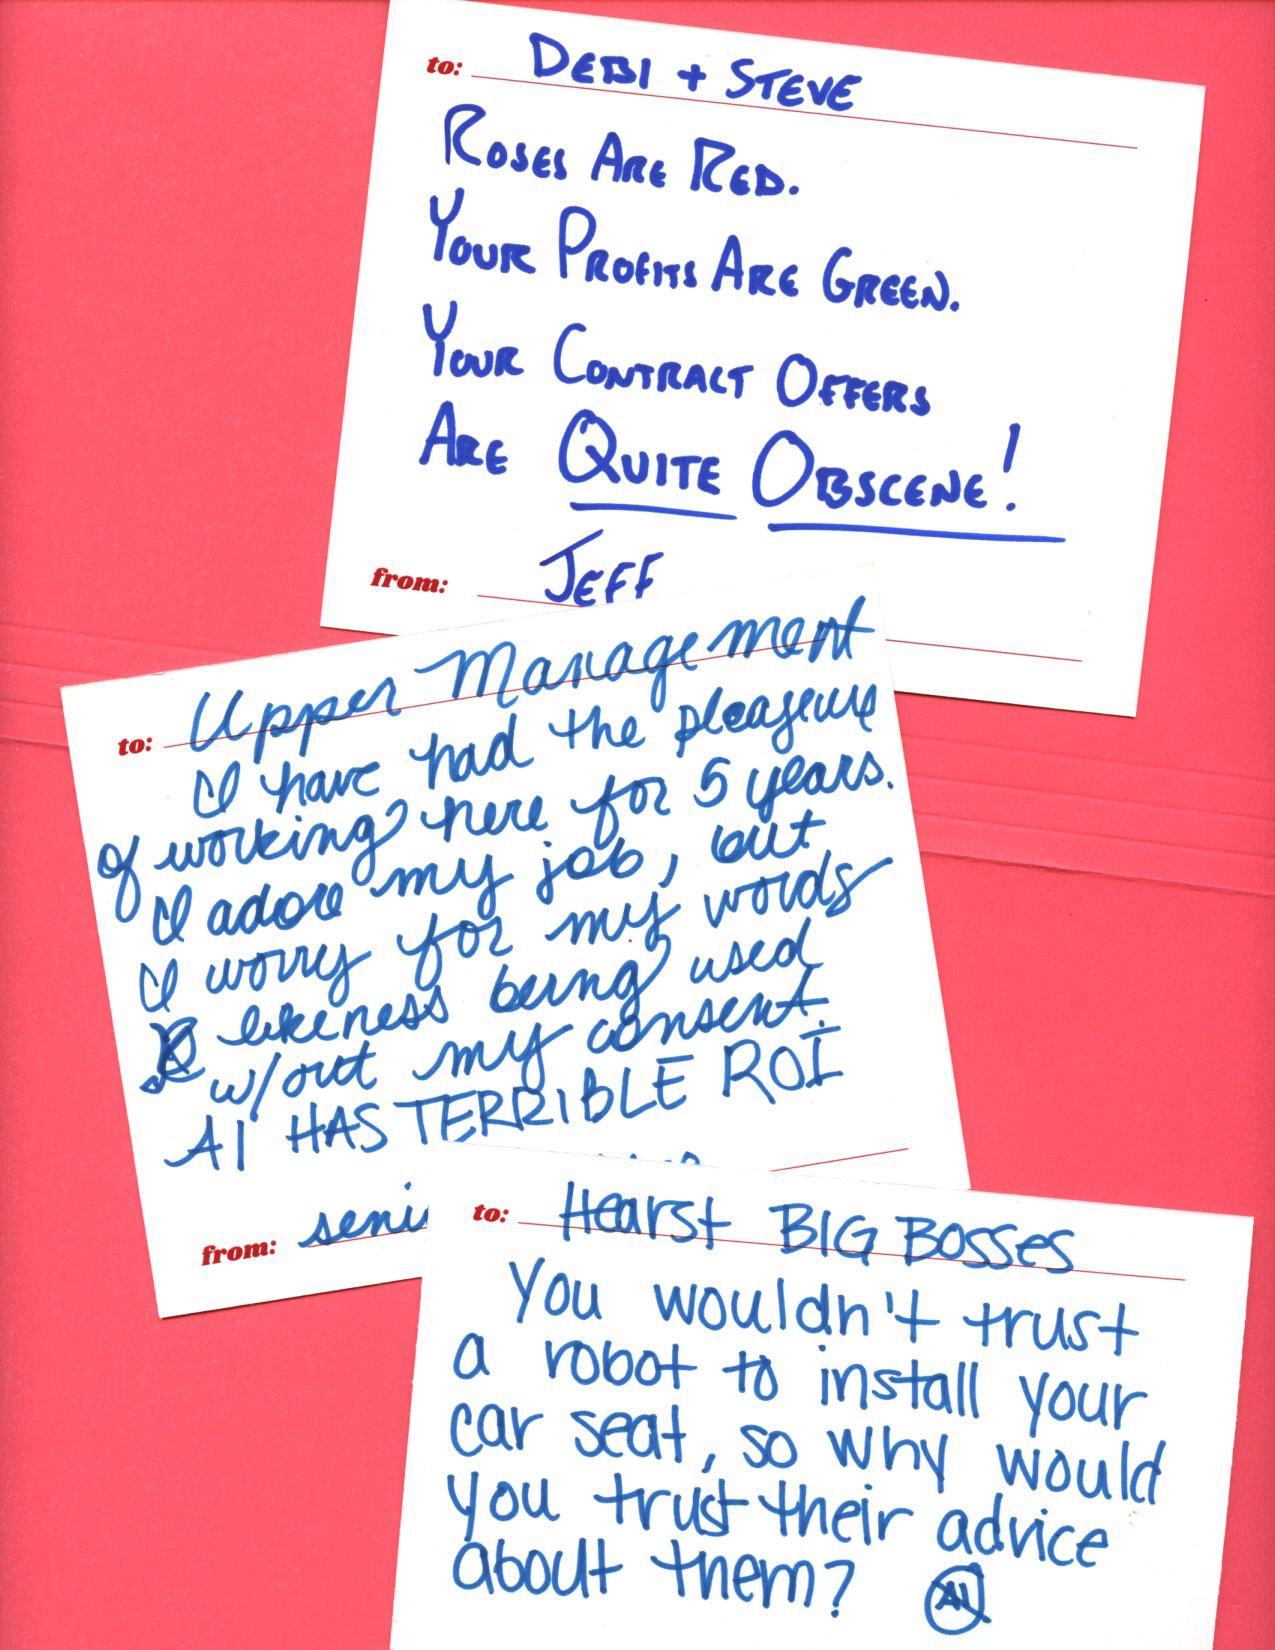 to: DEBI + STEVE
ROSES ARE RED.
YOUR PROFITS ARE GREEN.
YOUR CONTRACT OFFERS
ARE QUITE OBSCENE!
from: JEFF
to: Upper Management
I have had the pleaseure
of working here for 5 years.
I adore my job, but
I worry for my words
likeness being used
w/out my consent.
AI HAS TERRIBLE ROI
from:
to: Hearst BIG BOSSES
You wouldn't trust
a robot to install your
car seat, so why would
you trust their advice
about them? AI